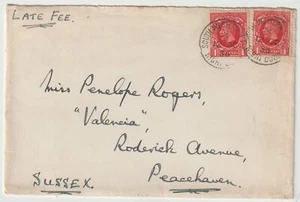 LATE FEE.
Miss Penelope Rogers,
"Valencia",
Roderick Avenue,
Peacehaven.
SUSSEX.